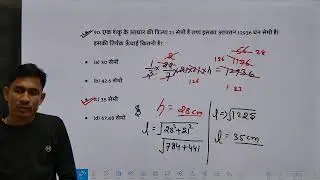 90. एक शंकु के आधार की त्रिज्या 21 सेमी है तथा इसका आयतन 12936 घन सेमी है।
इसकी तिर्यक ऊँचाई कितनी है?
(a) 30 सेमी
(b) 42.5 सेमी
35 सेमी
(d) 67.60 सेमी
h = 28 cm
l = √28²+21²
√784+441
l = √1225
l = 35 cm